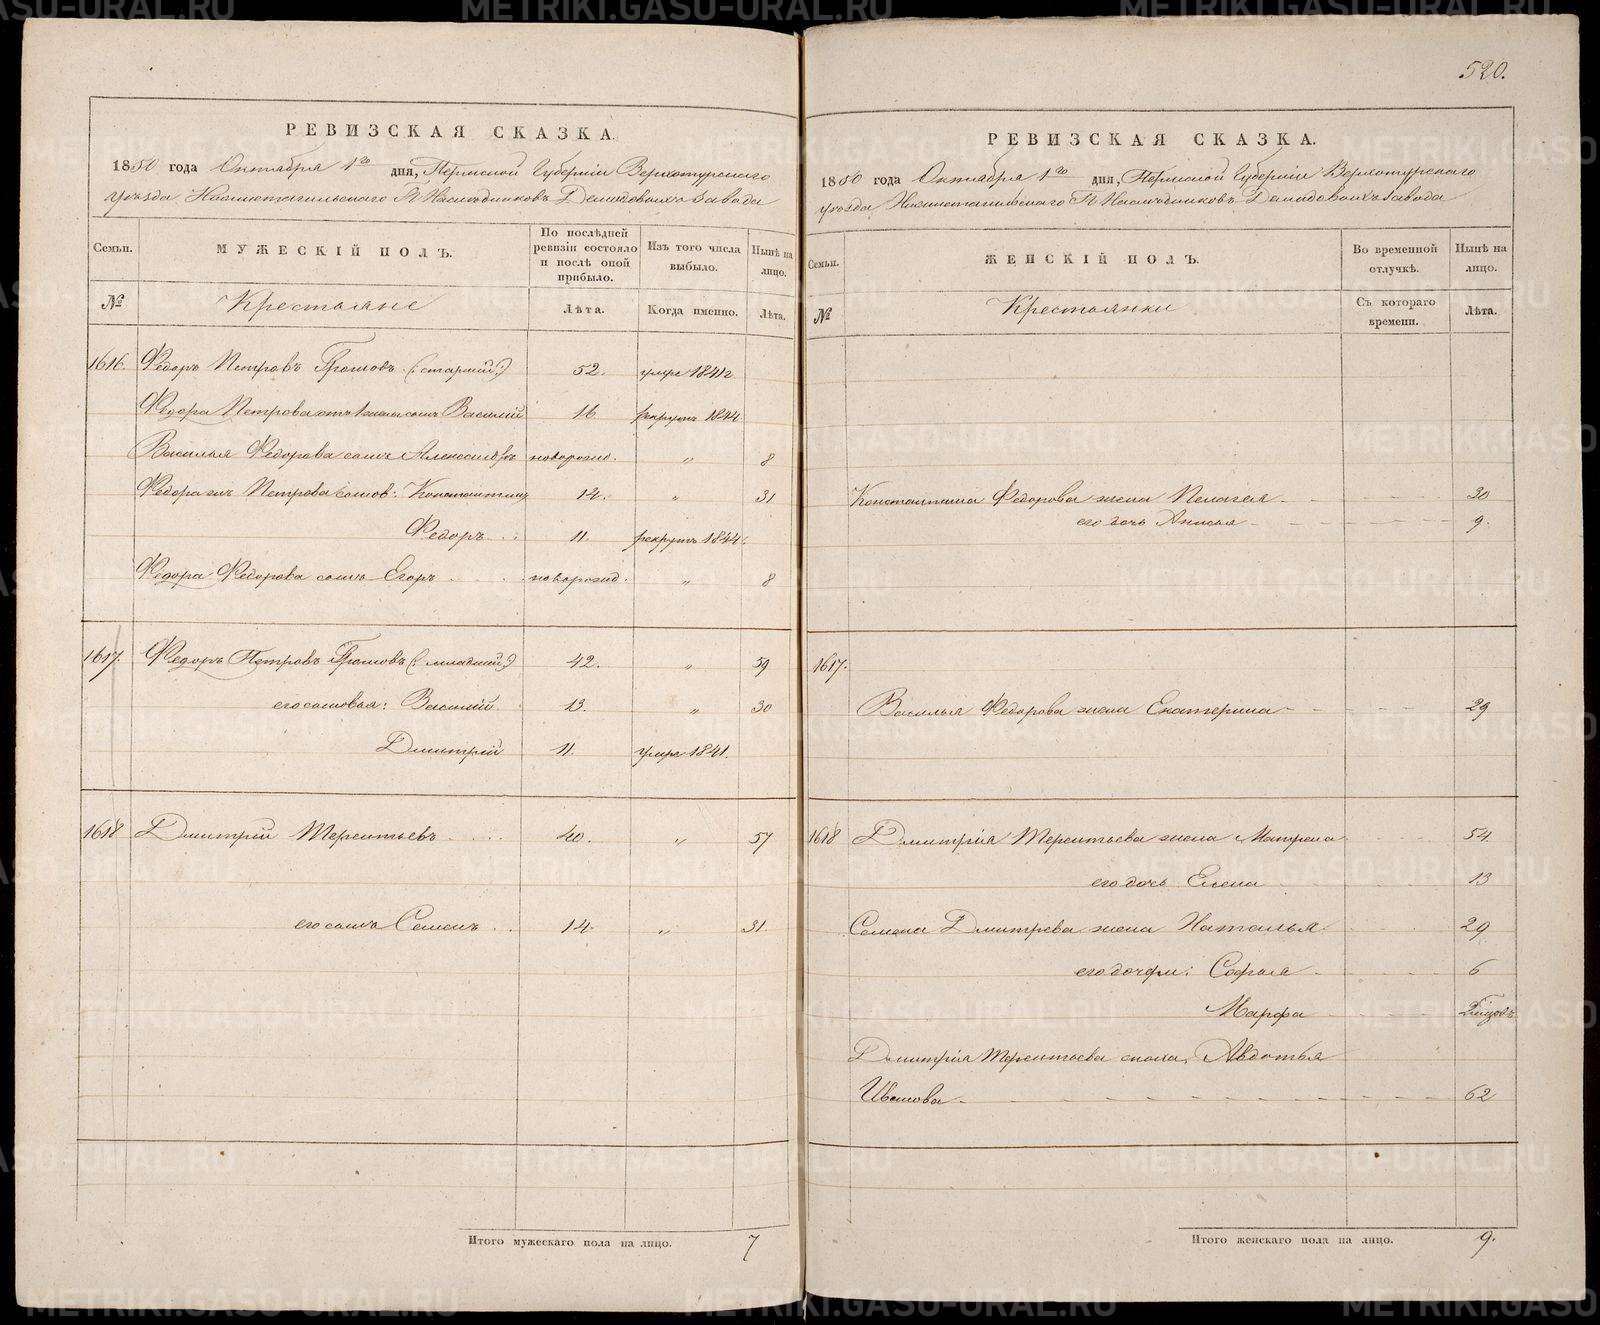 520.
РЕВИЗСКАЯ СКАЗКА.
1850 года Октября 1го дня, Пермской Губерніи Верхотурского
уѣзда Нижнетагильского Г.Г. Наслѣдниковъ Демидовыхъ завода
Семьи. МУЖЕСКІЙ ПОЛЪ. По послѣдней ревизіи состояло и послѣ оной прибыло. Изъ того числа выбыло. Нынѣ на лицо.
№ Крестьяне Лѣта. Когда именно. Лѣта.
1616. Федоръ Петровъ Громовъ (:старшій:) 52. умре 1841г
Федора Петрова отъ 1 жены сынъ Василій 16 рекрутъ 1844
Василья Федорова сынъ Александръ новорожд. " 8
Федора жъ Петрова сыновъ: Константинъ 14. " 31
Федоръ 11. рекрутъ 1844.
Федора Федорова сынъ Егоръ новорожд. " 8
1617. Федоръ Петровъ Громовъ (:младшій:) 42. " 59
его сыновья: Василій 13. " 30
Дмитрій 11. умре 1841.
1618 Дмитрій Терентьевъ 40. " 57
его сынъ Семенъ 14. " 31
Итого мужескаго пола на лицо. 7
РЕВИЗСКАЯ СКАЗКА.
1850 года Октября 1го дня, Пермской Губерніи Верхотурского
уѣзда Нижнетагильского Г.Г. Наслѣдниковъ Демидовыхъ завода
Семьи. ЖЕНСКІЙ ПОЛЪ. Во временной отлучкѣ. Нынѣ на лицо.
№ Крестьянки Съ котораго времени. Лѣта.
Константина Федорова жена Пелагея 30
его дочь Анисья 9.
1617.
Василья Федорова жена Екатерина 29
1618 Дмитрія Терентьева жена Матрена 54
его дочь Елена 13
Семена Дмитрева жена Наталья 29
его дочери: Софья 6
Марфа
Дмитрія Терентьева сноха, Авдотья
Иванова 62
Итого женскаго пола на лицо. 9.
METRIKI.GASO-URAL.RU